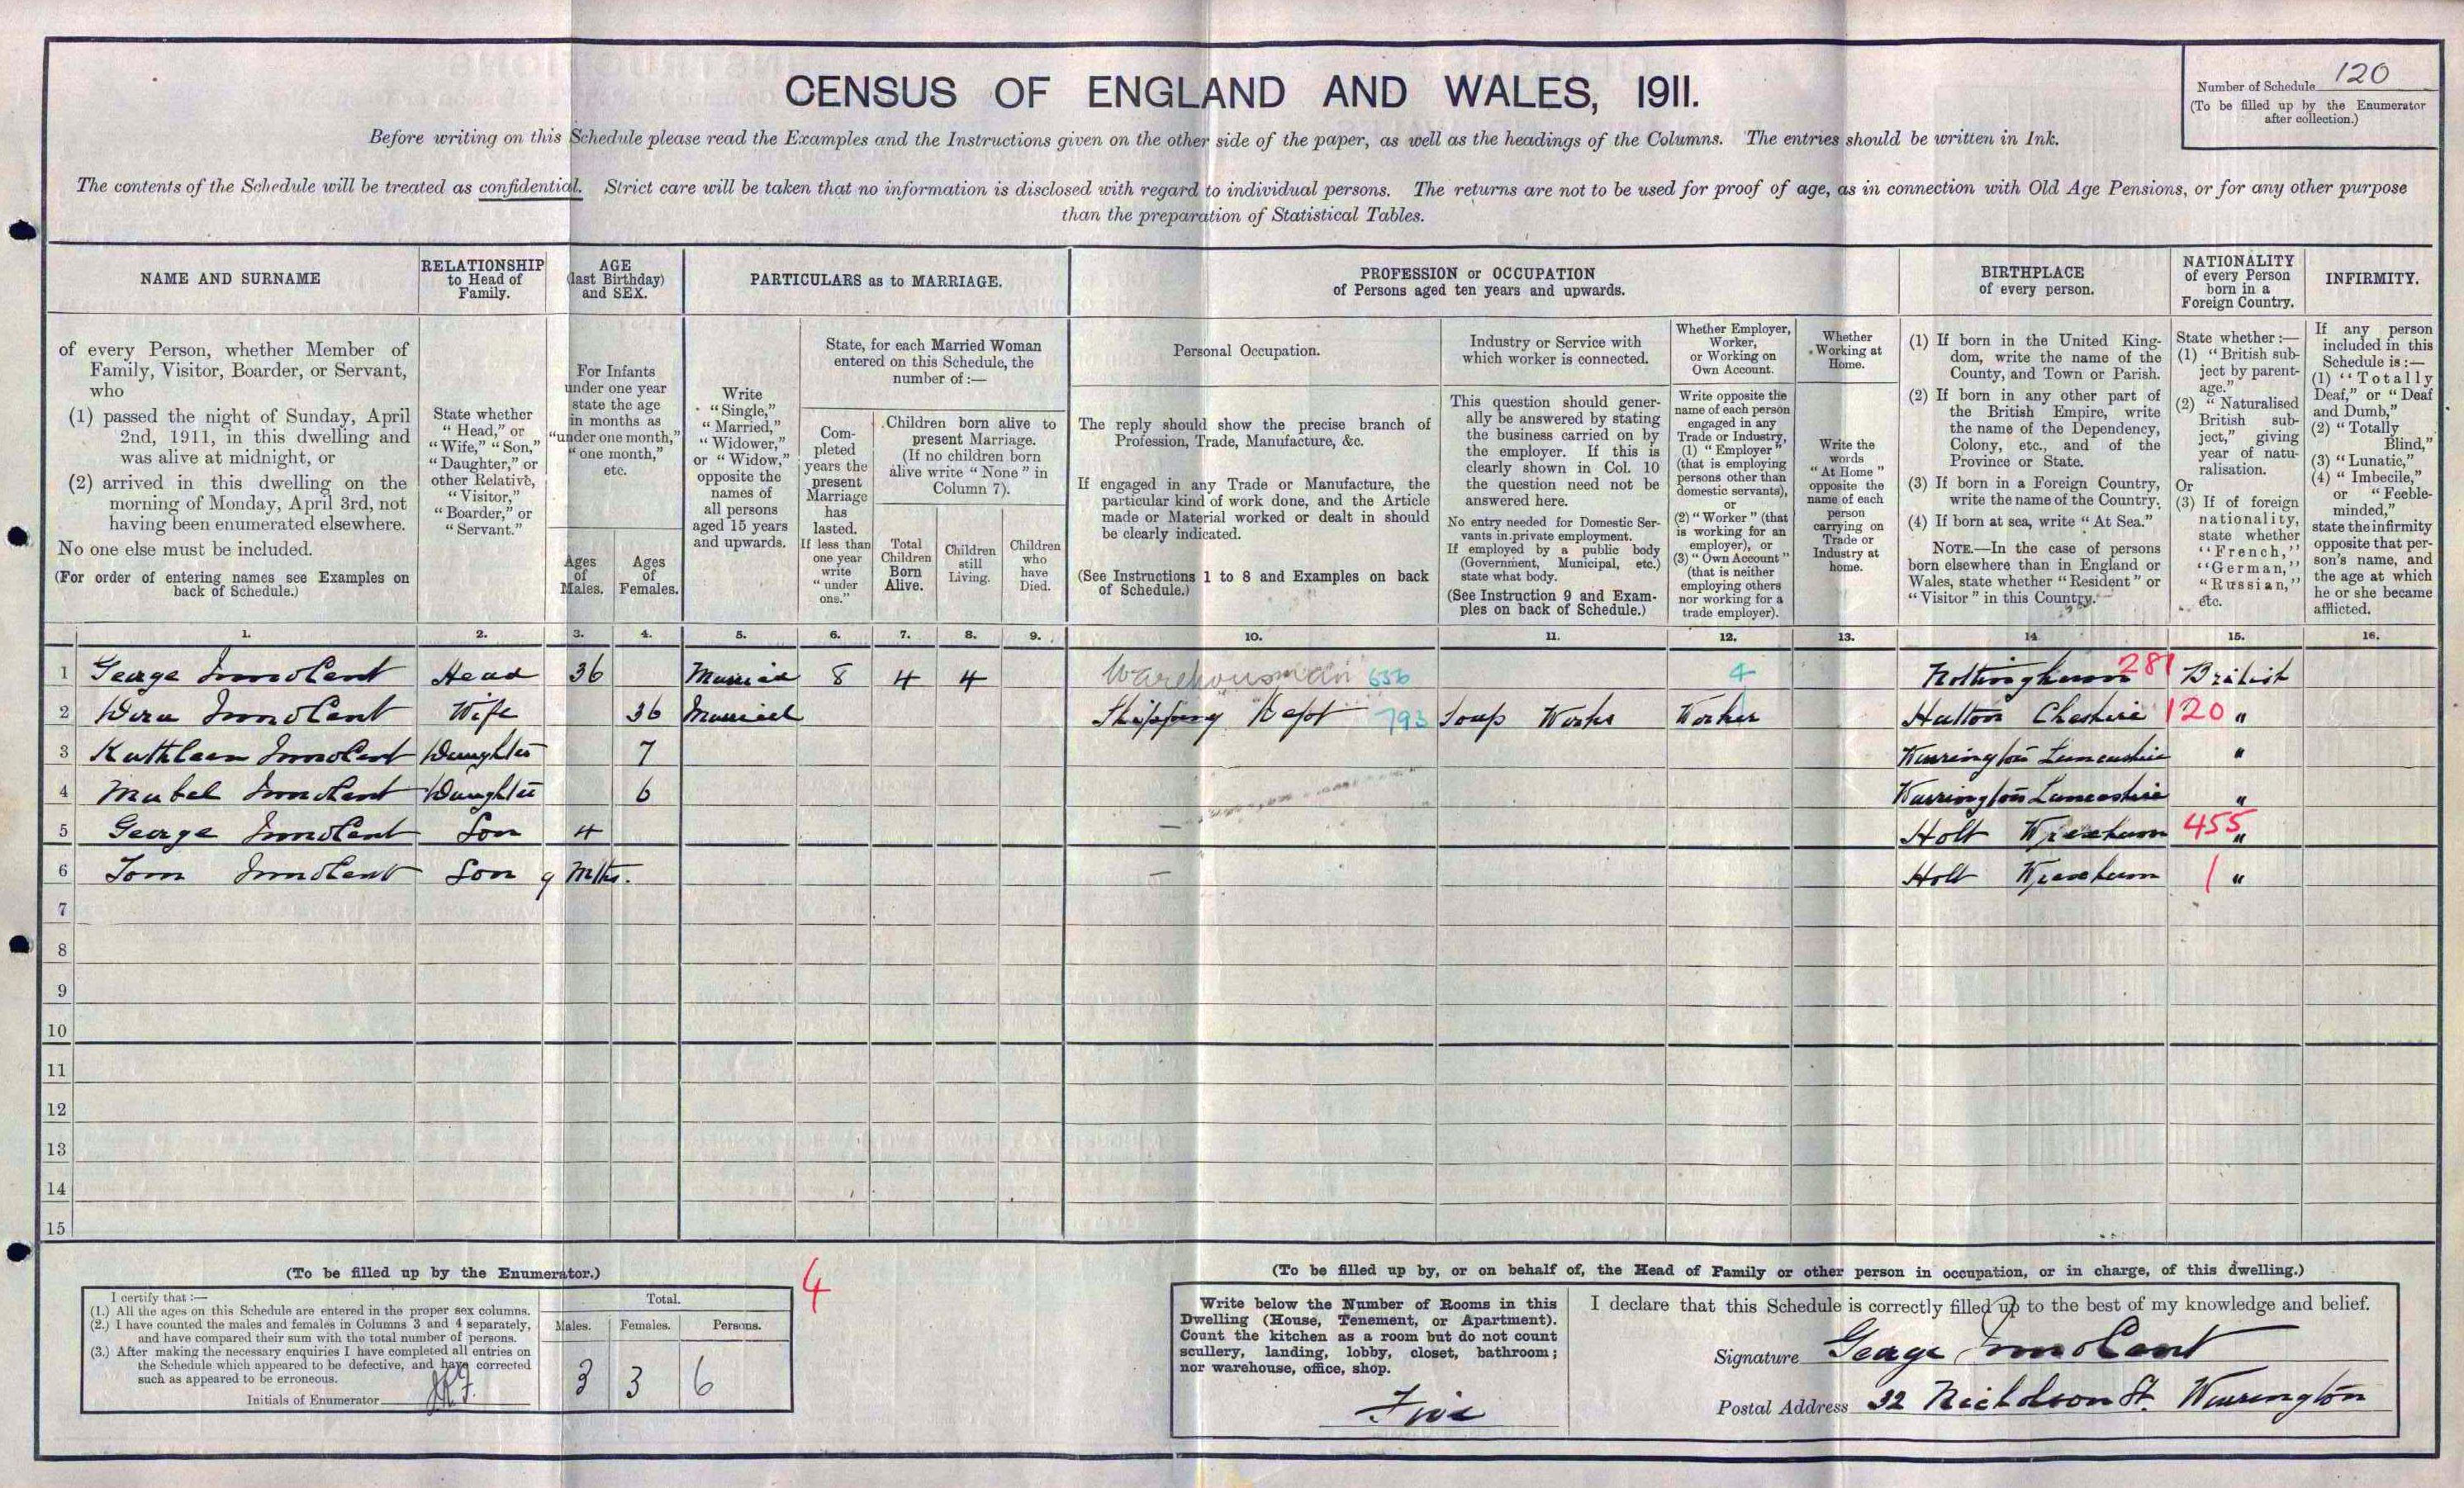 CENSUS OF ENGLAND AND WALES, 1911.
Number of Schedule 120
(To be filled up by the Enumerator
after collection.)
Before writing on this Schedule please read the Examples and the Instructions given on the other side of the paper, as well as the headings of the Columns. The entries should be written in Ink.
The contents of the Schedule will be treated as confidential. Strict care will be taken that no information is disclosed with regard to individual persons. The returns are not to be used for proof of age, as in connection with Old Age Pensions, or for any other purpose
than the preparation of Statistical Tables.
NAME AND SURNAME
of every Person, whether Member of
Family, Visitor, Boarder, or Servant,
who
(1) passed the night of Sunday, April
2nd, 1911, in this dwelling and
was alive at midnight, or
(2) arrived in this dwelling on the
morning of Monday, April 3rd, not
having been enumerated elsewhere.
No one else must be included.
(For order of entering names see Examples on
back of Schedule.)
RELATIONSHIP
to Head of
Family.
State whether
"Head," or
"Wife," "Son,"
"Daughter," or
other Relative,
"Visitor,"
"Boarder," or
"Servant."
AGE
(last Birthday)
and SEX.
For Infants
under one year
state the age
in months as
"under one month,"
"one month,"
etc.
Ages
of
Males.
Ages
of
Females.
PARTICULARS as to MARRIAGE.
Write
"Single,"
"Married,"
"Widower,"
or "Widow,"
opposite the
names of
all persons
aged 15 years
and upwards.
State, for each Married Woman
entered on this Schedule, the
number of :—
Com-
pleted
years the
present
Marriage
has
lasted.
If less than
one year
write
"under
one."
Children born alive to
present Marriage.
(If no children born
alive write "None" in
Column 7).
Total
Children
Born
Alive.
Children
still
Living.
Children
who
have
Died.
PROFESSION or OCCUPATION
of Persons aged ten years and upwards.
Personal Occupation.
The reply should show the precise branch of
Profession, Trade, Manufacture, &c.
If engaged in any Trade or Manufacture, the
particular kind of work done, and the Article
made or Material worked or dealt in should
be clearly indicated.
(See Instructions 1 to 8 and Examples on back
of Schedule.)
Industry or Service with
which worker is connected.
This question should gener-
ally be answered by stating
the business carried on by
the employer. If this is
clearly shown in Col. 10
the question need not be
answered here.
No entry needed for Domestic Ser-
vants in private employment.
If employed by a public body
(Government, Municipal, etc.)
state what body.
(See Instruction 9 and Exam-
ples on back of Schedule.)
Whether Employer,
Worker,
or Working on
Own Account.
Write opposite the
name of each person
engaged in any
Trade or Industry,
(1) "Employer"
(that is employing
persons other than
domestic servants),
or
(2) "Worker" (that
is working for an
employer), or
(3) "Own Account"
(that is neither
employing others
nor working for a
trade employer).
Whether
Working at
Home.
Write the
words
"At Home"
opposite the
name of each
person
carrying on
Trade or
Industry at
home.
BIRTHPLACE
of every person.
(1) If born in the United King-
dom, write the name of the
County, and Town or Parish.
(2) If born in any other part of
the British Empire, write
the name of the Dependency,
Colony, etc., and of the
Province or State.
(3) If born in a Foreign Country,
write the name of the Country.
(4) If born at sea, write "At Sea."
NOTE.—In the case of persons
born elsewhere than in England or
Wales, state whether "Resident" or
"Visitor" in this Country.
NATIONALITY
of every Person
born in a
Foreign Country.
State whether :—
(1) "British sub-
ject by parent-
age."
(2) "Naturalised
British sub-
ject," giving
year of natu-
ralisation.
Or
(3) If of foreign
nationality,
state whether
"French,"
"German,"
"Russian,"
etc.
INFIRMITY.
If any person
included in this
Schedule is :—
(1) "Totally
Deaf," or "Deaf
and Dumb,"
(2) "Totally
Blind,"
(3) "Lunatic,"
(4) "Imbecile,"
or "Feeble-
minded,"
state the infirmity
opposite that per-
son's name, and
the age at which
he or she became
afflicted.
1. 2. 3. 4. 5. 6. 7. 8. 9. 10. 11. 12. 13. 14 15. 16.
1 George Innocent Head 36 Married 8 4 4 Warehousman 656 4 Nottingham 281 British
2 Innocent Wife 36 Married Shipping Dept 793 Soap Works Worker Halton Cheshire 120 "
3 Kathleen Innocent Daughter 7 Warrington Lancashire "
4 Mabel Innocent Daughter 6 Warrington Lancashire "
5 George Innocent Son 4 — Holt Wrexham 455 "
6 Tom Innocent Son 9 Mths. — Holt Wrexham 1 "
7
8
9
10
11
12
13
14
15
(To be filled up by the Enumerator.)
I certify that :—
(1.) All the ages on this Schedule are entered in the proper sex columns.
(2.) I have counted the males and females in Columns 3 and 4 separately,
and have compared their sum with the total number of persons.
(3.) After making the necessary enquiries I have completed all entries on
the Schedule which appeared to be defective, and have corrected
such as appeared to be erroneous.
Initials of Enumerator
Total.
Males. Females. Persons.
3 3 6
4
(To be filled up by, or on behalf of, the Head of Family or other person in occupation, or in charge, of this dwelling.)
Write below the Number of Rooms in this
Dwelling (House, Tenement, or Apartment).
Count the kitchen as a room but do not count
scullery, landing, lobby, closet, bathroom;
nor warehouse, office, shop.
Five
I declare that this Schedule is correctly filled up to the best of my knowledge and belief.
Signature George Innocent
Postal Address 32 Nicholson St. Warrington